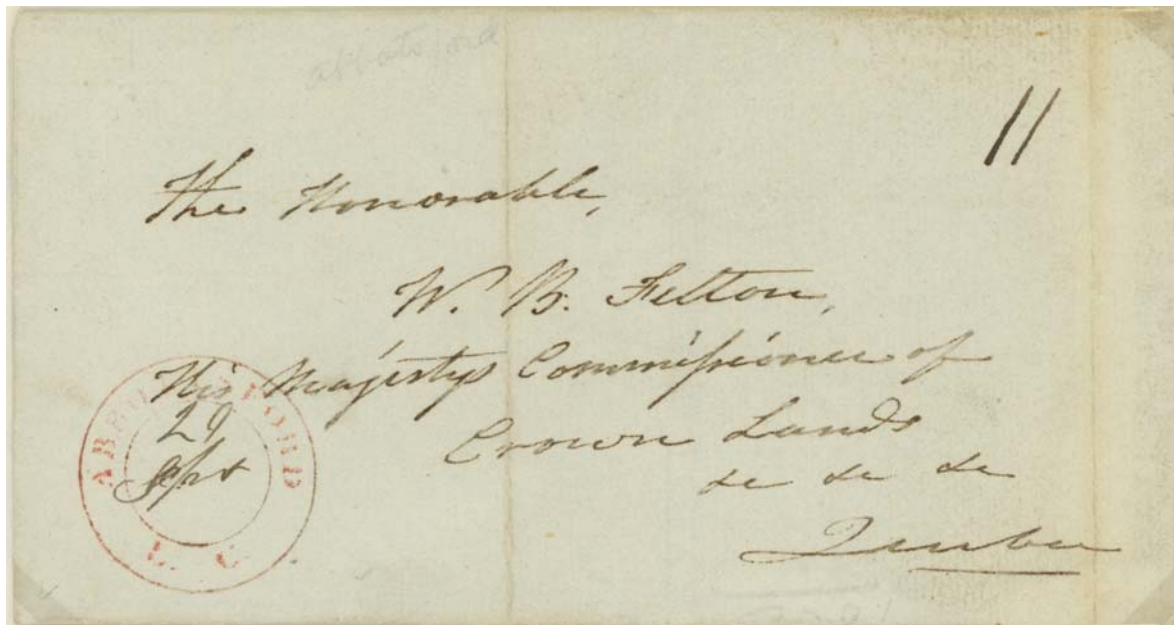 abbotsford
11
The Honorable,
W. B. Felton,
His Majestys Commissioner of
Crown Lands
&c &c &c
Quebec
ABBOTSFORD
29
Sept
L. C.